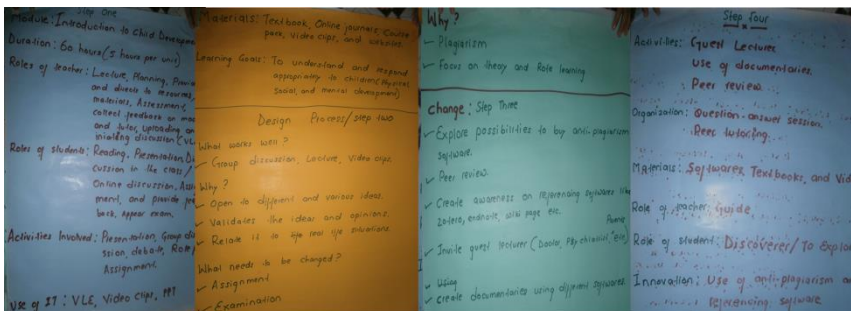 Step One
Module: Introduction to Child Developme
Duration: 60 hours (5 hours per unit)
Roles of teacher: Lecture, Planning, Provi
and direct to resources,
materials, Assessment,
collect feedback on mod
and tutor, uploading an
discussion (VL
Roles of students: Reading, Presentation, Dis
cussion in the class/
Online discussion, Assi
ment, and provide fee
back, appear exam.
Activities Involved: Presentation, Group dis
ssion, debate, Role
Assignment.
Use of IT: VLE, Video Clips, PPT
Materials: Textbook, Online journals, Course
pack, video clips, and websites.
Learning Goals: To understand and respond
appropriately to children (Physical,
social, and mental development)
Design Process/step two
What works well?
✓ Group discussion, Lecture, Video clips.
Why?
✓ Open to different and various ideas.
✓ Validates the ideas and opinions.
✓ Relate it to life real life situations.
What needs to be changed?
✓ Assignment
✓ Examination
Why?
✓ Plagiarism
✓ Focus on theory and Rote learning
Change: Step Three
✓ Explore possibilities to buy anti-plagiarism
software.
✓ Peer review.
✓ Create awareness on referencing softwares like
zotero, endnote, wiki page etc.
✓ Invite guest lecturer (Doctor, Psychiatrist, etc)
Using
✓ create documentaries using different softwares.
Step Four
Activities: Guest Lecture
Use of documentaries.
Peer review.
Organization: Question-answer session.
Peer tutoring.
Materials: Softwares, Textbooks, and Vid
Role of teacher: Guide.
Role of student: Discoverer/To Explo
Innovation: Use of anti-plagiarism a
referencing software